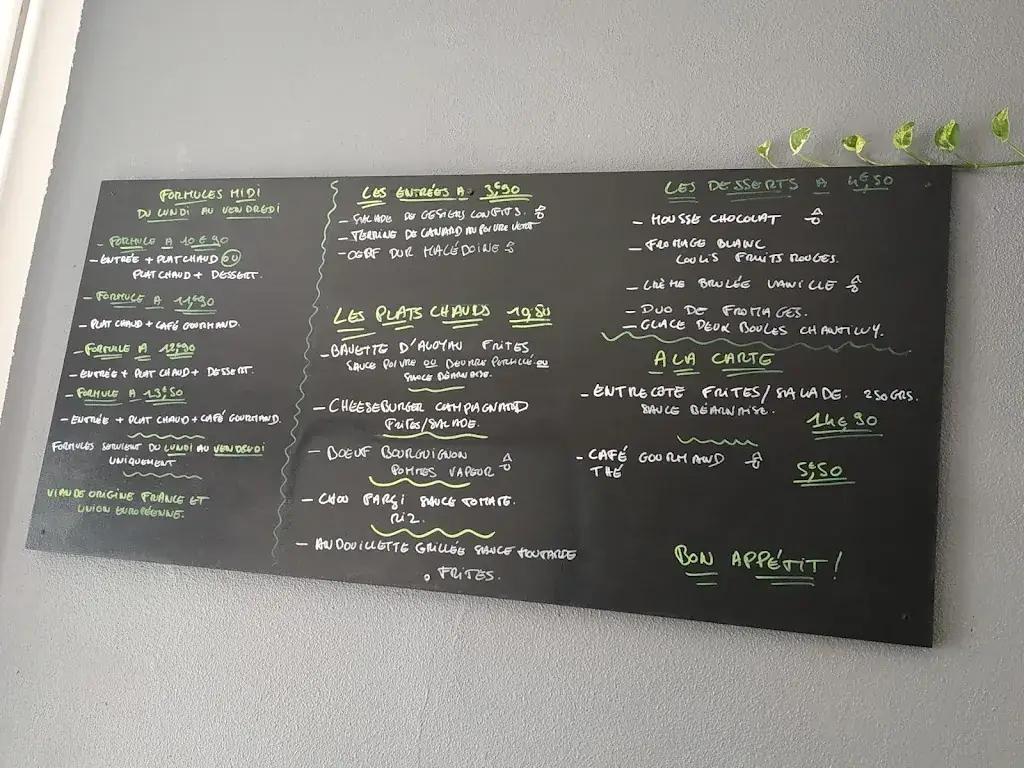 FORMULES MIDI
DU LUNDI AU VENDREDI
- FORMULE A 10€90
- ENTRÉE + PLAT CHAUD OU
PLAT CHAUD + DESSERT.
- FORMULE A 11€90
- PLAT CHAUD + CAFÉ GOURMAND.
- FORMULE A 12,90
- ENTRÉE + PLAT CHAUD + DESSERT.
- FORMULE A 13€50
- ENTRÉE + PLAT CHAUD + CAFÉ GOURMAND.
FORMULES SERVIENT DU LUNDI AU VENDREDI
UNIQUEMENT
VIANDE ORIGINE FRANCE ET
UNION EUROPÉENNE.
LES ENTRÉES A 3€90
- SALADE DE GESIERS CONFITS.
- TERRINE DE CANARD AU POIVRE VERT
- OEUF DUR MACÉDOINE
LES PLATS CHAUDS
- BAVETTE D'ALOYAU FRITES
SAUCE POIVRE OU BEURRE PERSILLÉ OU
SAUCE BÉARNAISE.
- CHEESEBURGER CAMPAGNARD
FRITES/SALADE.
- BOEUF BOURGUIGNON
POMMES VAPEUR
- CHOU FARÇI SAUCE TOMATE.
RIZ.
- ANDOUILLETTE GRILLÉE SAUCE MOUTARDE
FRITES.
LES DESSERTS A 4€50
- MOUSSE CHOCOLAT
- FROMAGE BLANC
COULIS FRUITS ROUGES.
- CRÈME BRULÉE VANILLE
- DUO DE FROMAGES.
- GLACE DEUX BOULES CHANTILLY.
A LA CARTE
- ENTRECOTE FRITES/SALADE. 250GRS.
SAUCE BÉARNAISE.
14€90
- CAFÉ GOURMAND
THÉ
5,50
BON APPÉTIT!